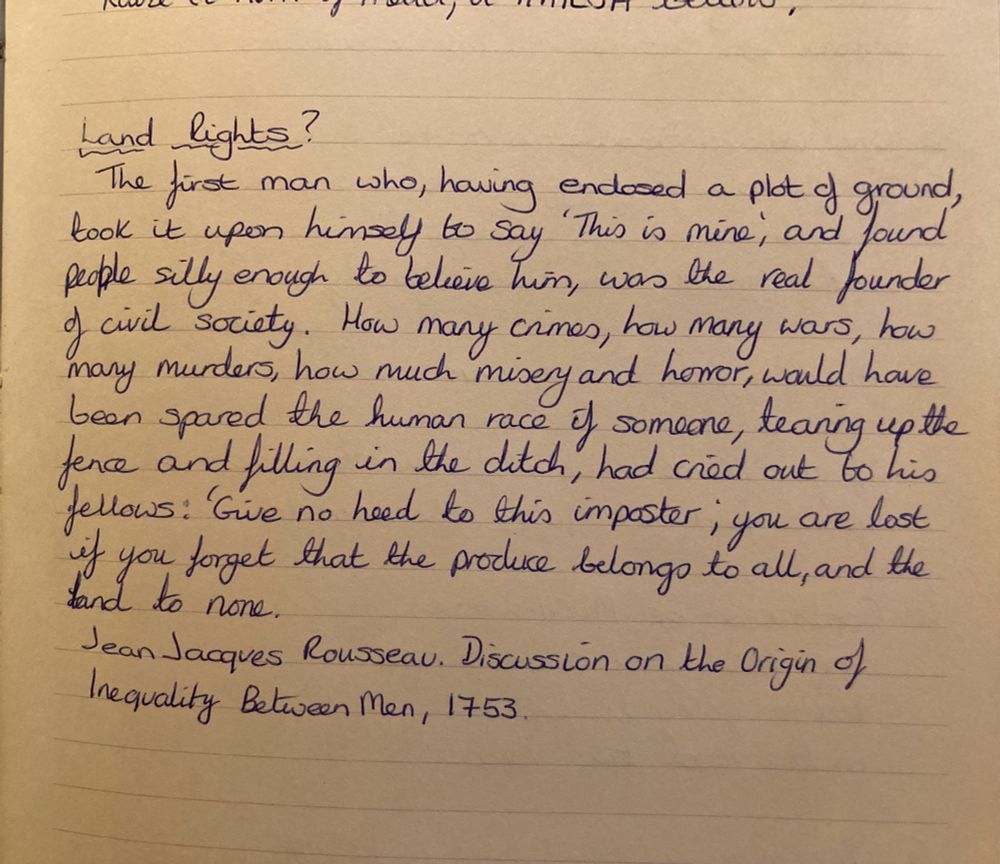 Land Rights?
The first man who, having enclosed a plot of ground,
took it upon himself to say 'This is mine', and found
people silly enough to believe him, was the real founder
of civil society. How many crimes, how many wars, how
many murders, how much misery and horror, would have
been spared the human race if someone, tearing up the
fence and filling in the ditch, had cried out to his
fellows: 'Give no heed to this imposter; you are lost
if you forget that the produce belongs to all, and the
land to none.
Jean Jacques Rousseau. Discussion on the Origin of
Inequality Between Men, 1753.